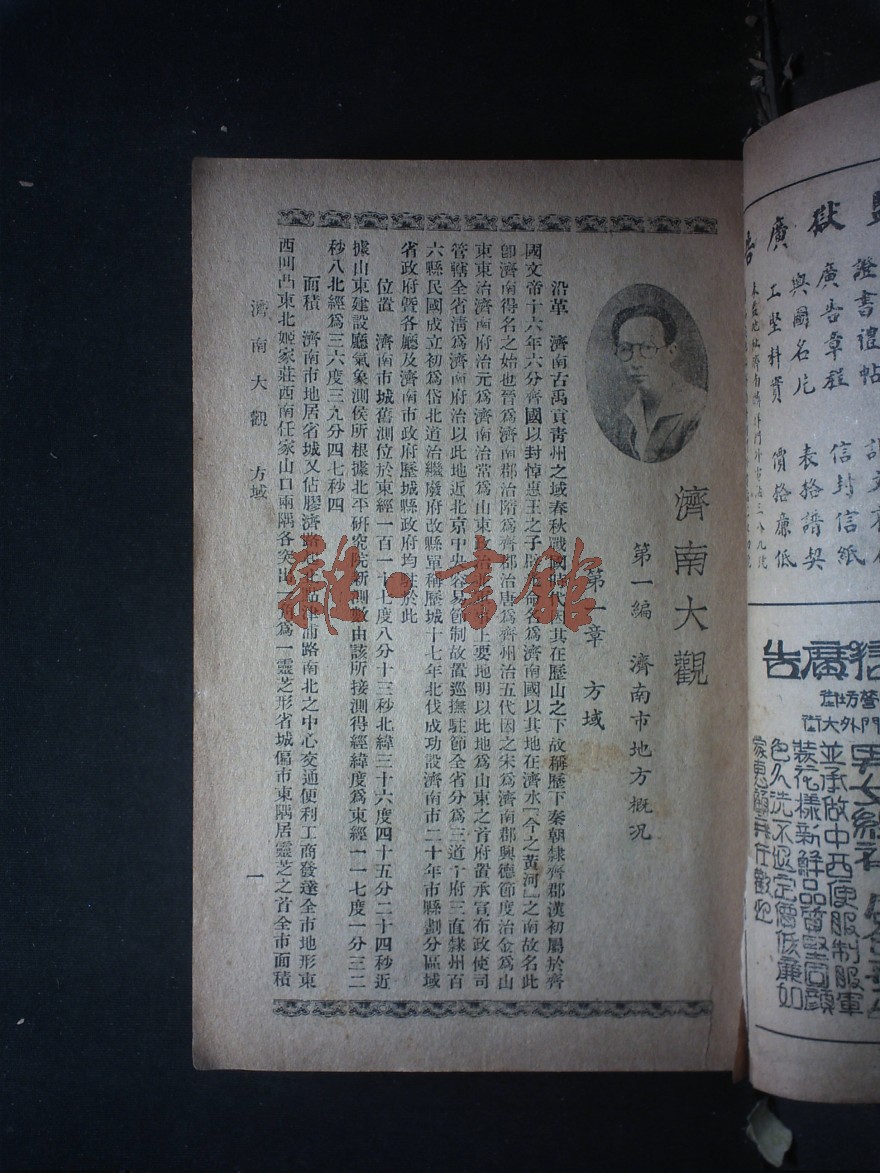 獄廣告
證書禮帖
廣告章程 信封信紙
輿圖名片 表格譜契
工堅料實 價格廉低
廣告
門外大街
男女
並承做中西便服制服軍
裝花樣新鮮品質堅固顏
色久洗不退定價低廉如
蒙惠顧無任歡迎
濟南大觀
第一編 濟南市地方概况
第一章 方域
沿革 濟南古禹貢青州之域春秋戰國時代因其在歷山之下故稱歷下秦朝隸齊郡漢初屬於齊
國文帝十六年六分齊國以封悼惠王之子辟光命名爲濟南國以其地在濟水「今之黃河」之南故名此
卽濟南得名之始也晉爲濟南郡治隋爲齊郡治唐爲齊州治五代因之宋爲濟南郡興德節度治金爲山
東東治濟南府治元爲濟南治常爲山東政治史上要地明以此地爲山東之首府置承宣布政使司
管轄全省淸爲濟南府治以此地近北京中央容易節制故置巡撫駐節全省分爲三道十府三直隸州百
六縣民國成立初爲岱北道治繼廢府改縣單稱歷城十七年北伐成功設濟南市二十年市縣劃分區域
省政府暨各廳及濟南市政府歷城縣政府均駐於此
位置 濟南市城舊測位於東經一百一十七度八分十三秒北緯三十六度四十五分二十四秒近
據山東建設廳氣象測侯所根據北平研究院新測數由該所接測得經緯度爲東經一一七度一分三二
秒八北經爲三六度三九分四七秒四
面積 濟南市地居省城又佔膠濟路津浦路南北之中心交通便利工商發達全市地形東
西凹凸東北姬家莊西南任家山口兩隅各突出一角爲一靈芝形省城偏市東隅居靈芝之首全市面積
濟南大觀 方域
一
雜·書館